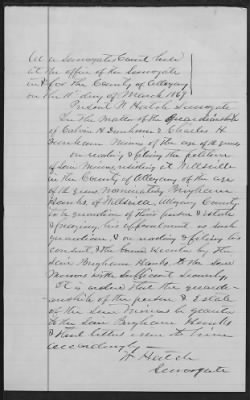 At a Surrogates Court held
at the office of the Surrogate
in & for the County of Allegany
on the 11" day of March 1867
Present W Hatch Surrogate
In the Matter of the Guardianship
of Calvin H Dunham & Charles H
Dunham Minors of the age of years
on reading & filing the petition
of said Minors residing at Willsville
in the County of Allegany of the age
of 14 years nominating Brigham
Hanks of Willsville Allegany County
as guardian of their person & estate
& praying his appointment as such
guardian, & on reading & filing his
consent, & the Bond executed by the
said Brigham Hanks to the said
Minors with sufficient security,
It is ordered that the guardi-
anship of the person & Estate
of the said minors be granted
to the said Brigham Hanks
& that letters issue to him
accordingly —
W Hatch
Surrogate